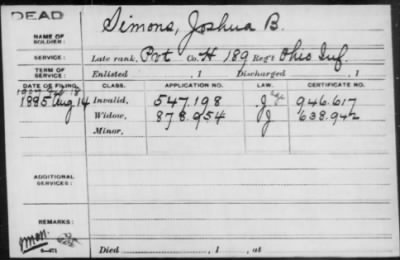 DEAD
NAME OF SOLDIER: Simons, Joshua B.
SERVICE: Late rank, Pvt Co. H 189 Reg't Ohio Inf.
TERM OF SERVICE: Enlisted , 1 Discharged , 1
DATE OF FILING. CLASS. APPLICATION NO. LAW. CERTIFICATE NO.
1885 Aug 14 Invalid, 547.198 J 946.617
Widow, 878.954 J 638.942
Minor,
ADDITIONAL SERVICES:
REMARKS:
Died , 1 , at